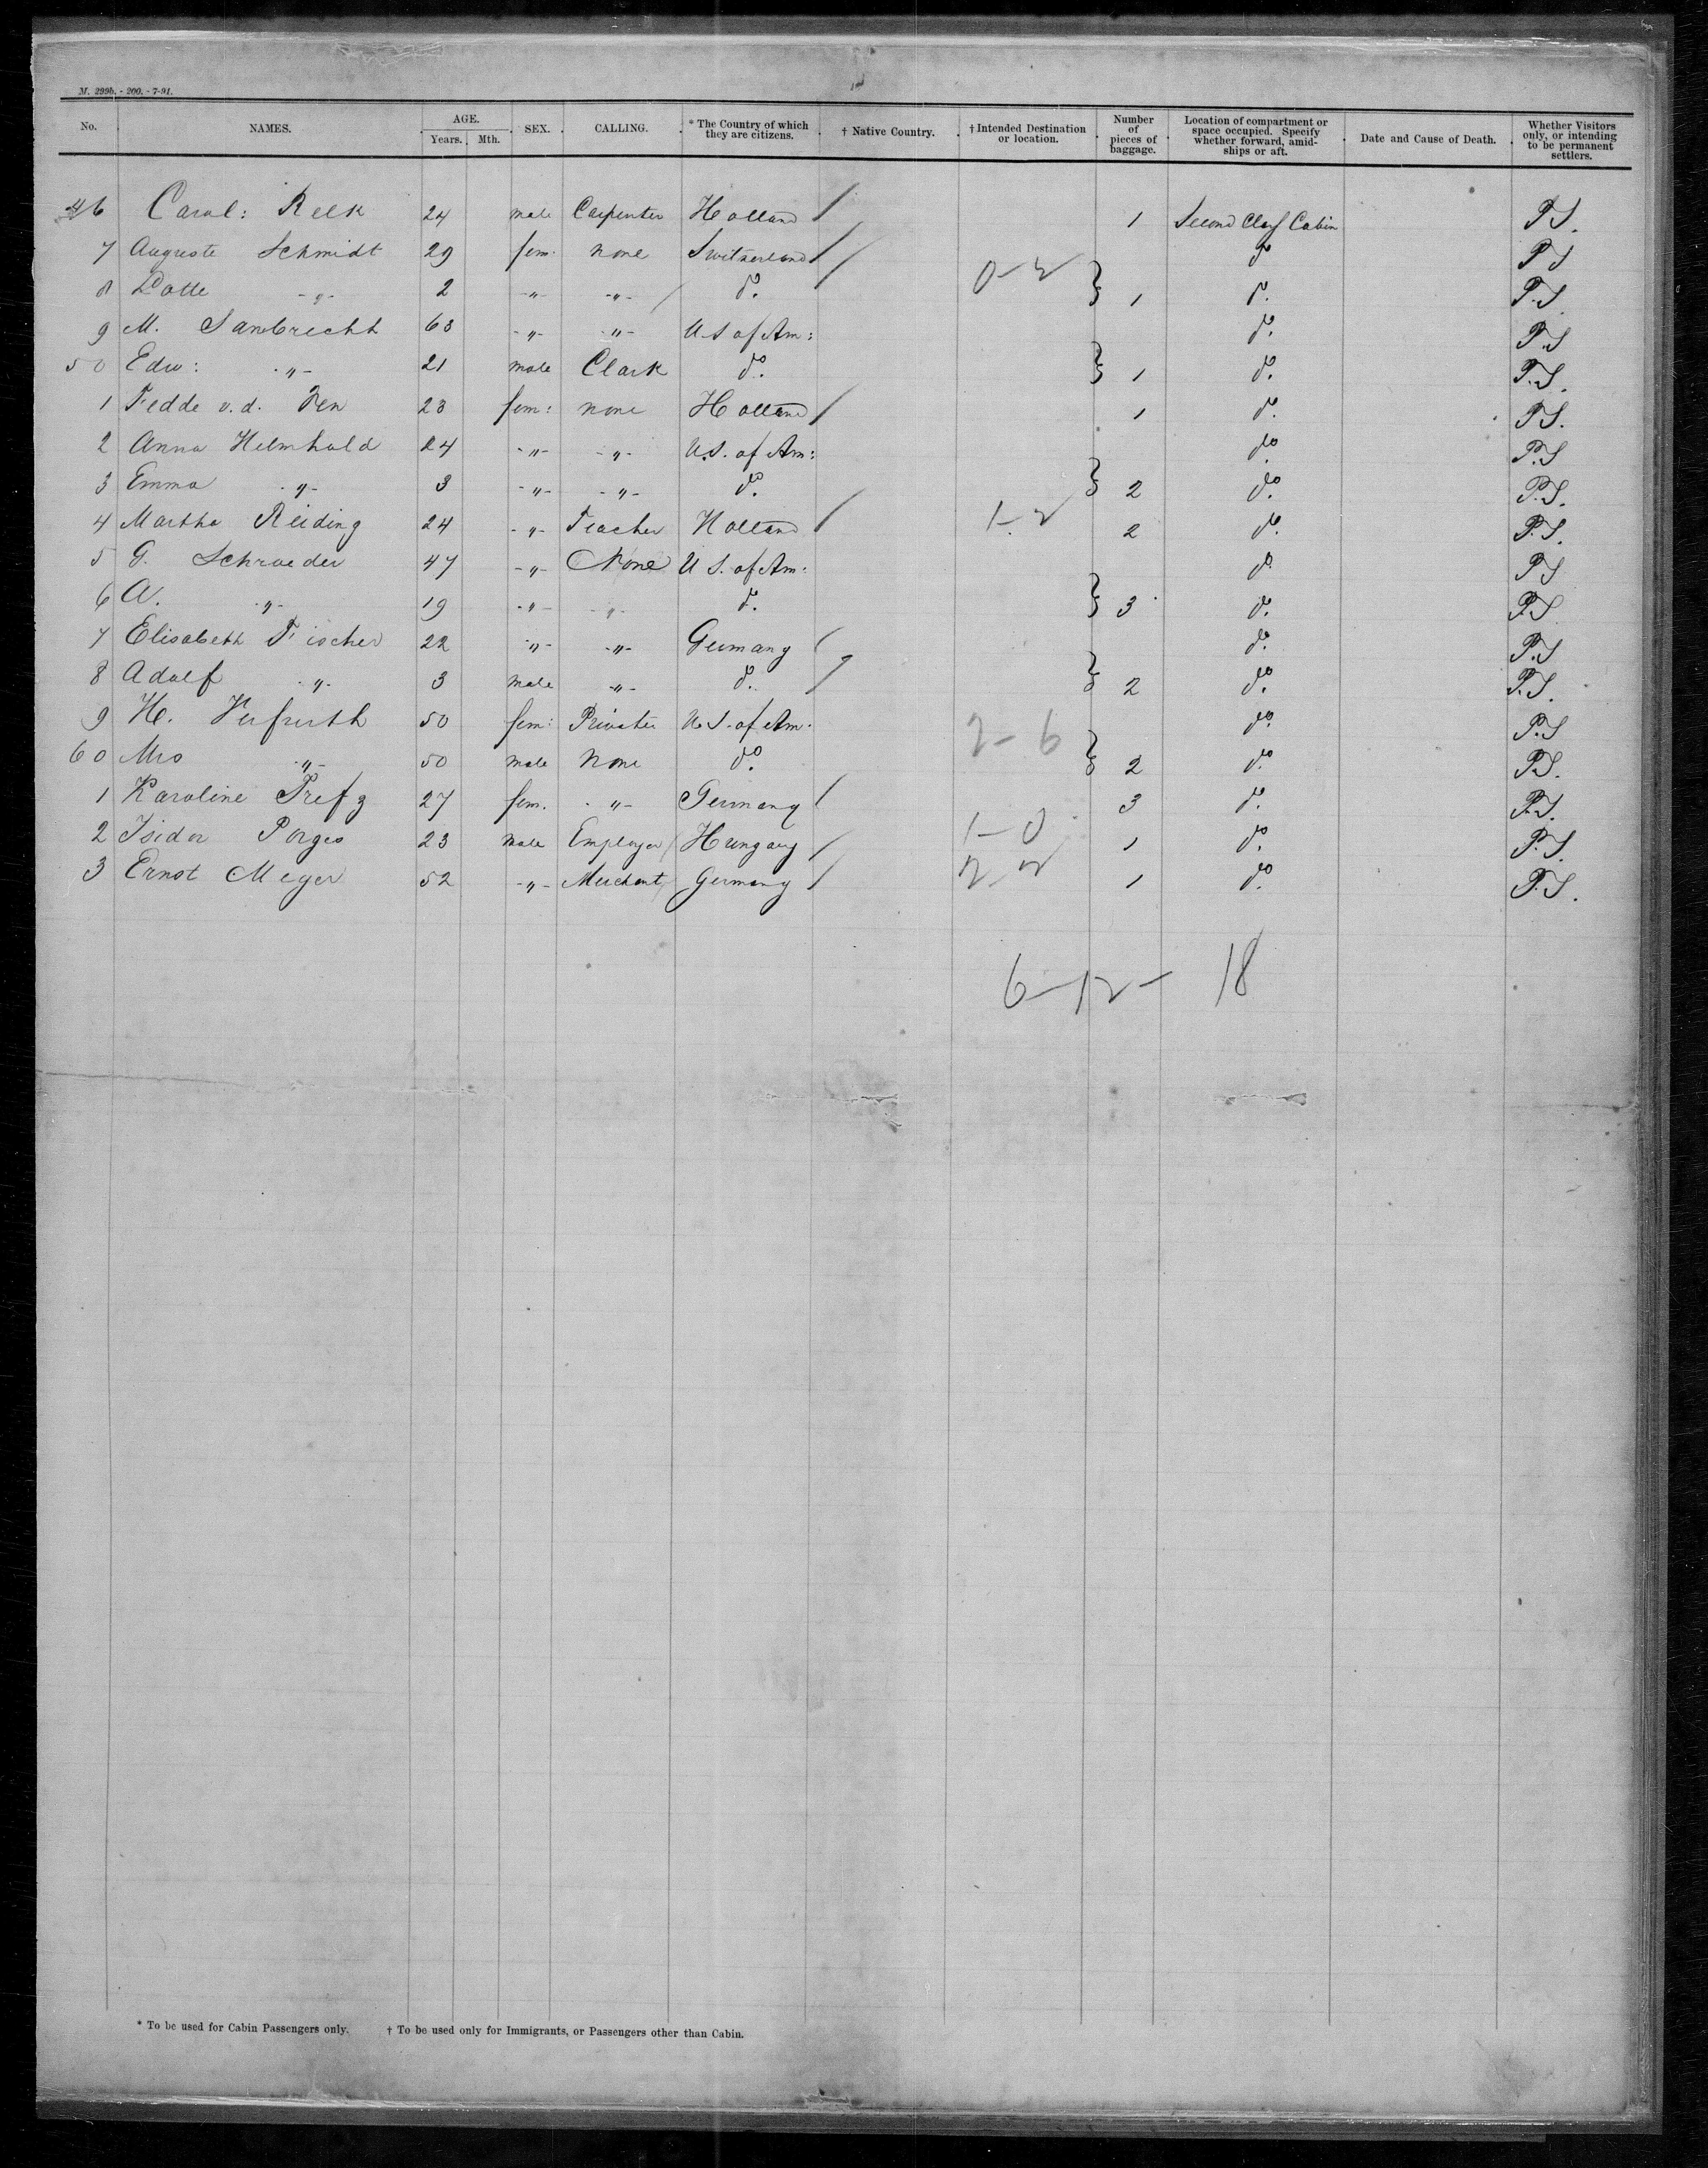 M. 299b. - 200. - 7-91.
No. NAMES. AGE. Years. Mth. SEX. CALLING. * The Country of which they are citizens. † Native Country. † Intended Destination or location. Number of pieces of baggage. Location of compartment or space occupied. Specify whether forward, amidships or aft. Date and Cause of Death. Whether Visitors only, or intending to be permanent settlers.
46 Carol: Relk 24 male Carpenter Holland / 1 Second Class Cabin P.S.
7 Auguste Schmidt 29 fem. none Switzerland / do P S
8 Lotte -"- 2 -"- -"- / do. 0-2 } 1 do. P.S
9 M. Sambrecht 63 -"- -"- U.S of Am: do. P.S
50 Edw: -"- 21 male Clark do. } 1 do. P.S.
1 Fedde v.d. 23 fem: none Holland / 1 do. P.S.
2 Anna Helmhold 24 -"- -"- U.S. of Am: do. P.S
3 Emma -"- 3 -"- -"- do. } 2 do. P.S.
4 Martha Reiding 24 -"- Teacher Holland / 1-2 2 do. P.S.
5 G. Schroeder 47 -"- None U S. of Am: do. P S
6 A. -"- 19 -"- -"- do. } 3 do. P.S
7 Elisabeth Fischer 22 -"- -"- Germany / do. P.S
8 Adolf -"- 3 male -"- do. / } 2 do. P.S.
9 H. 50 fem: Privatier U.S. of Am. do. P.S
60 Mrs -"- 50 male none do. 2-6 } 2 do. P.S.
1 Karoline 27 fem. -"- Germany / 3 do. P.S.
2 Isidor Porges 23 male Employer / Hungary / 1-0 1 do. P.S.
3 Ernst Meyer 52 -"- Merchant / Germany / 2-2 1 do. P.S.
6-12- 18
* To be used for Cabin Passengers only. † To be used only for Immigrants, or Passengers other than Cabin.